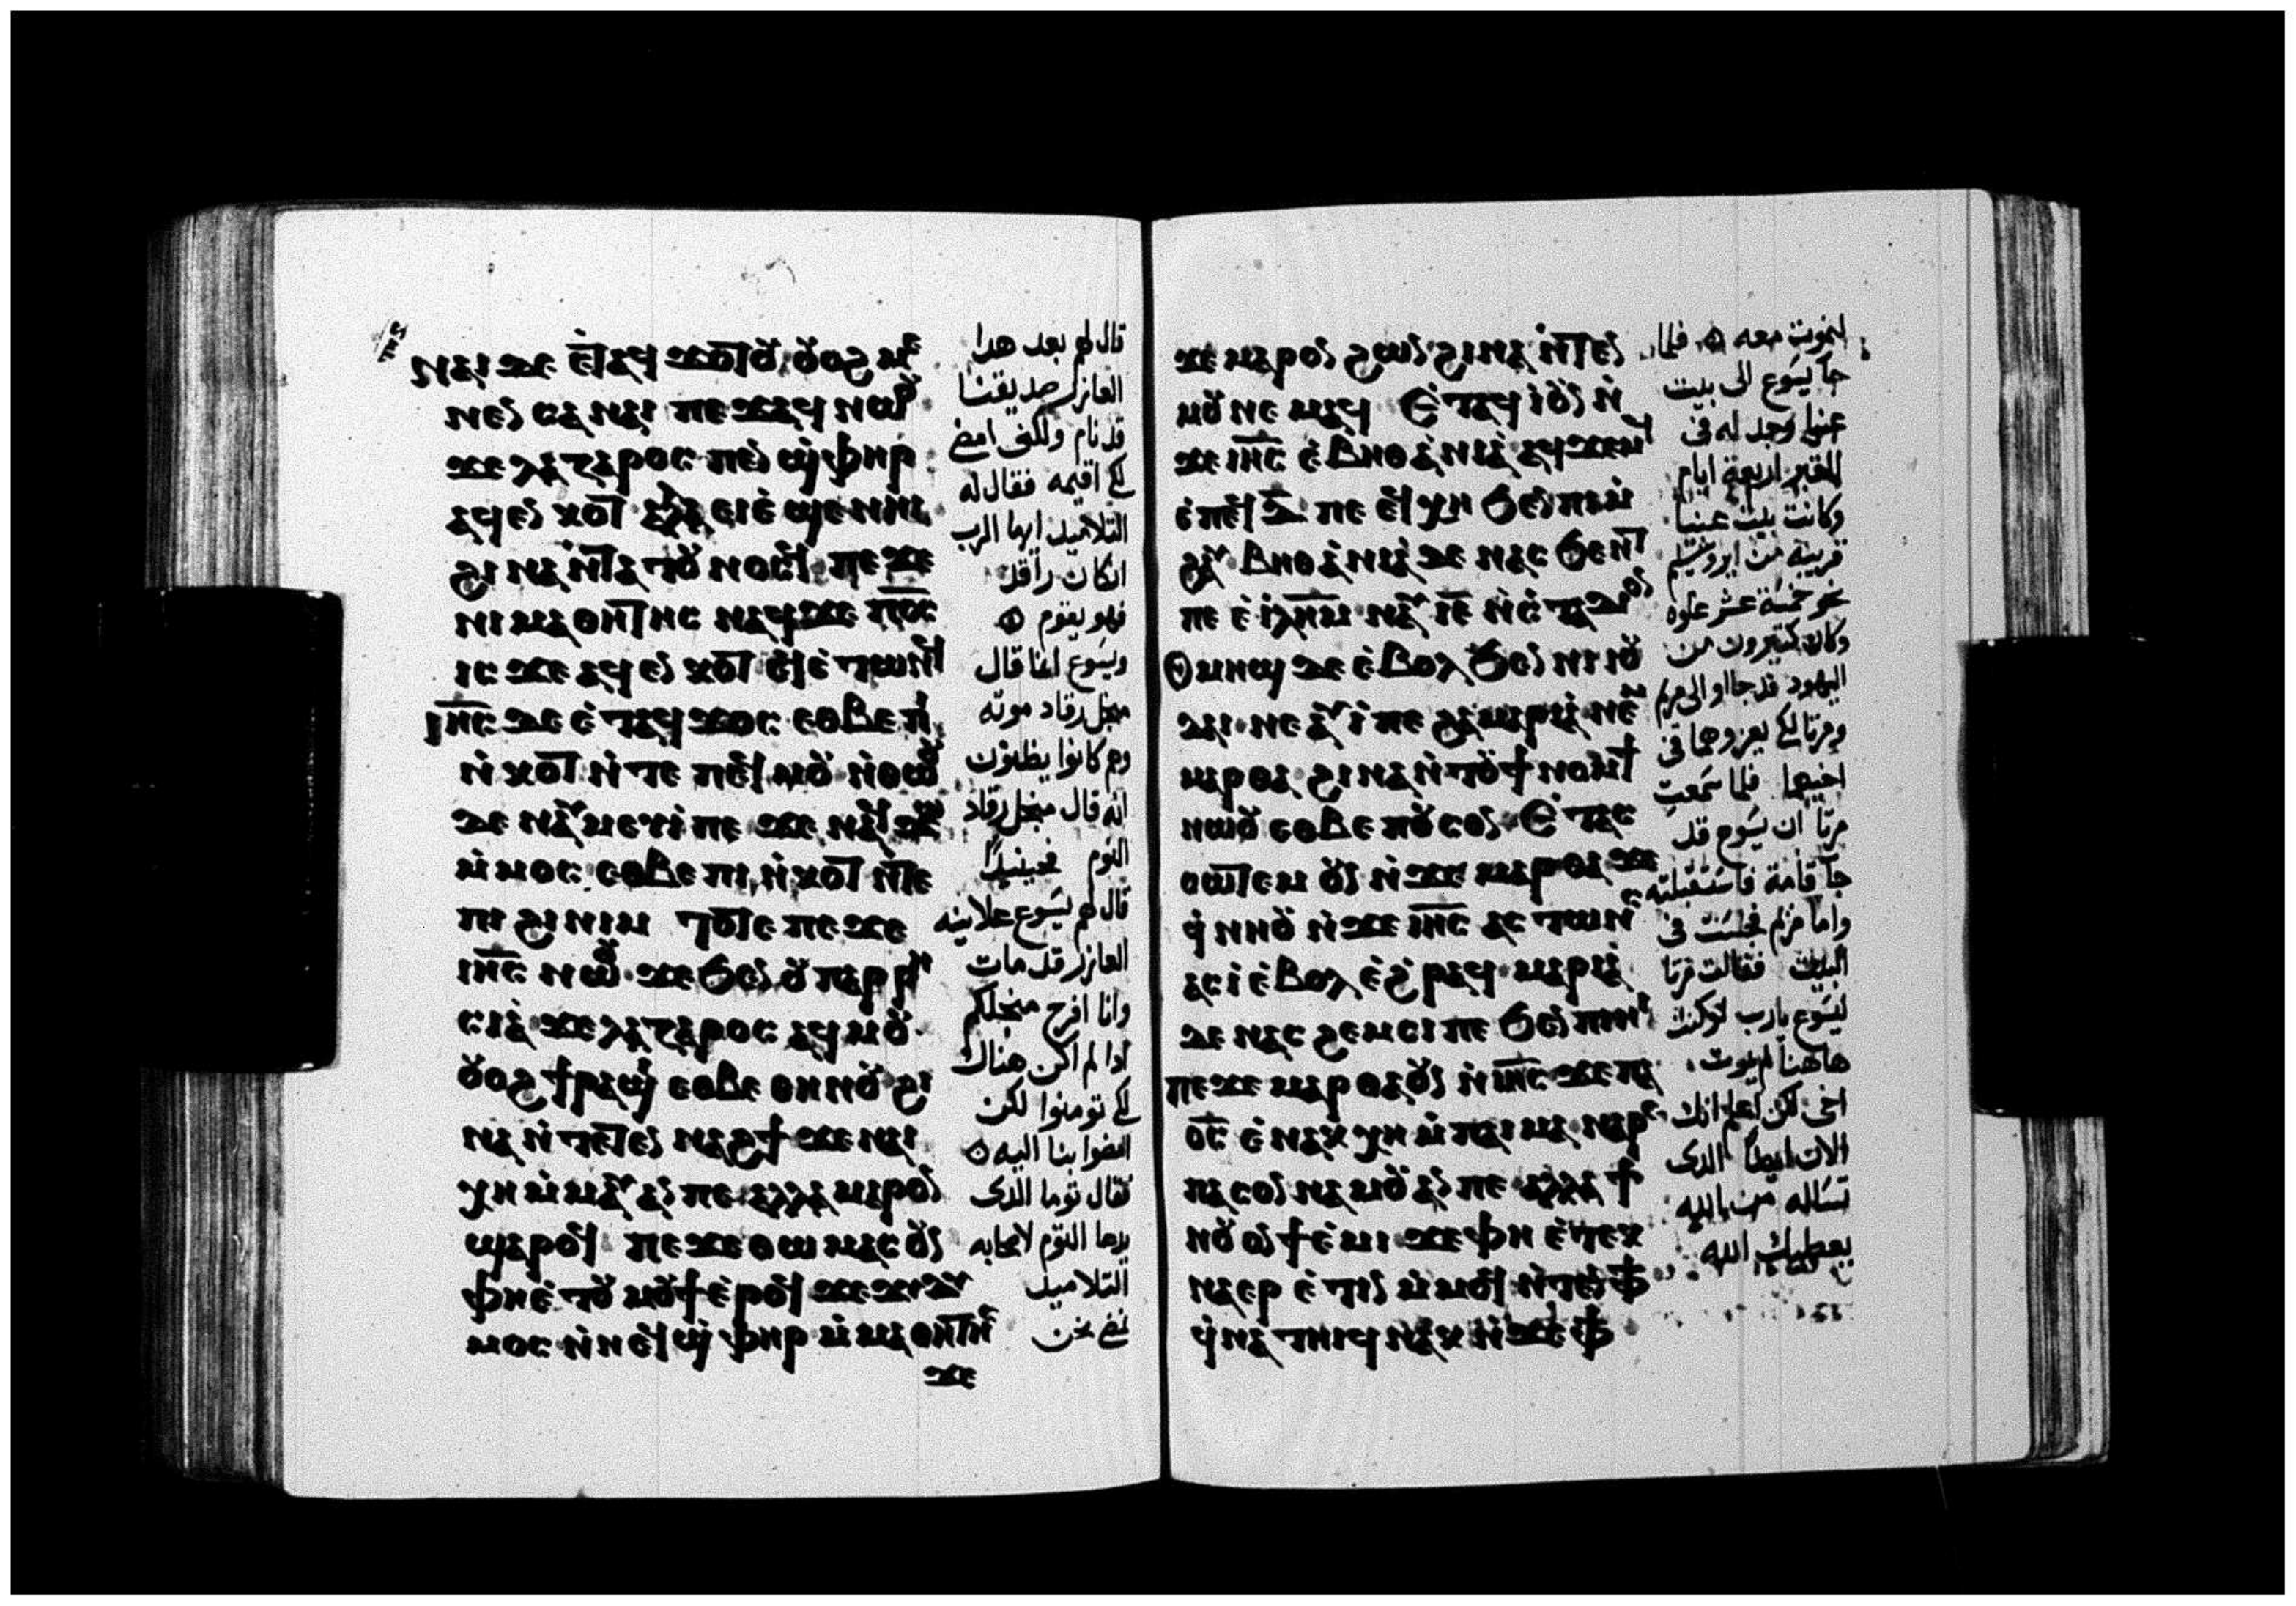 ⲛⲁⲓ ⲇⲉ ⲉⲧⲁϥϫⲟⲧⲟⲩ ⲟⲩⲟϩ ⲙⲉ
ⲛⲉⲛⲥⲁ ⲛⲁⲓ ⲡⲉϫⲁϥ ⲛⲱⲟⲩ
ϫⲉ ⲗⲁⲍⲁⲣⲟⲥ ⲡⲉⲛϣ̀ⲫⲏⲣ
ⲁϥⲉⲛⲕⲟⲧ ⲁⲗⲗⲁ ⲉⲓⲉ̀ϣⲉⲛⲏⲓ
ϩⲓⲛⲁ ⲛ̀ⲧⲁⲧⲟⲩⲛⲟⲥϥ ⲡⲉϫⲉ
ⲛⲓⲙⲁⲑⲏⲧⲏⲥ ⲛⲁϥ ϫⲉ ⲡ̅ⲟ̅ⲥ̅
ⲓⲥϫⲉ ⲁϥⲉⲛⲕⲟⲧ ϥⲓⲉ̀ⲧⲱⲛϥ
ⲓⲏ̅ⲥ̅ ⲇⲉ ⲉ̀ⲧⲁϥϫⲟⲥ ⲉⲑⲃⲉ ⲡⲓ
ⲛ̀ⲕⲟⲧ ⲛ̀ⲧⲉ ⲡⲉϥⲙⲟⲩ ⲛ̀ⲑⲱⲟⲩ
ⲇⲉ ⲛⲁⲩⲙⲉⲩⲓ̀ ⲡⲉ ϫⲉ ⲛⲁϥϫⲱ
ⲙ̀ⲙⲟⲥ ⲉⲑⲃⲉ ⲡⲓⲛ̀ⲕⲟⲧ ⲛ̀ⲧⲉ
ⲡⲓϩⲓⲛⲓⲙ ⲧⲟⲧⲉ ⲡⲉϫⲉ
ⲓⲏ̅ⲥ̅ ⲛⲱⲟⲩ ϫⲉ ϧⲉⲛ ⲟⲩⲡⲁⲣⲣⲏ
ⲥⲓⲁ̀ ϫⲉ ⲗⲁⲍⲁⲣⲟⲥ ⲁϥⲙⲟⲩ
ⲟⲩⲟϩ ϯⲣⲁϣⲓ ⲉⲑⲃⲉ ⲑⲏⲛⲟⲩ ϩⲓ
ⲛⲁ ⲛ̀ⲧⲉⲧⲉⲛⲛⲁϩϯ ϫⲉ ⲛⲁⲓ
ⲭⲏ ⲙ̀ⲙⲁⲩ ⲁⲛ ⲡⲉ ⲁⲗⲗⲁ ⲙⲁⲣⲟⲛ
ϣⲁⲣⲟϥ ⲡⲉϫⲉ ⲑⲱⲙⲁⲥ ⲟⲩⲛ
ⲫⲏⲉ̀ⲧⲟⲩⲙⲟⲩϯ ⲉ̀ⲣⲟϥ ϫⲉ ⲇⲓⲇⲩ
ⲙⲟⲥ ⲛ̀ⲛⲉϥϣ̀ⲫⲏⲣ ⲙ̀ⲙⲁⲑⲏⲧⲏⲥ
ϫⲉ
قال لهم بعد هدا
العازر صديقنا
قد نام ولكنى امضى
لكى اقيمه فقال له
التلاميد ايها الرب
ان كان راقد
فهو يقوم
ويسوع انما قال
من اجل رقاد موته
وهم كانوا يظنون
انه قال من اجل رقاد
النوم فحينيدٍ
قال لهم يسوع علانيه
العازر قد مات
وانا افرح من اجلكم
ادا لم اكن هناك
لكى تومنوا لكن
امضوا بنا اليه
فقال توما الدى
يدعا التوم لاصحابه
التلاميد
نمضى نحن
ϫⲉ ⲙⲁⲣⲟⲛ ϩⲱⲛ ϩⲓⲛⲁ ⲛ̀ⲧⲉⲛ
ⲙⲟⲩ ⲛⲉⲙⲁϥ ⲉ̀ⲧⲁϥⲓ̀ ⲟⲩⲛ ⲛ̀
ϫⲉ ⲓⲏ̅ⲥ̅ ⲉ̀ⲃⲏⲑⲁ̀ⲛⲓⲁ̀ ⲁϥϫⲉⲙϥ
ⲉ̀ⲡⲉϥⲇ̅ ⲡⲉ ⲉϥⲭⲏ ϧⲉⲛ ⲡⲓⲙ̀
ϩⲁⲩ ⲃⲏⲑⲁ̀ⲛⲓⲁ̀ ⲇⲉ ⲛⲁⲥϧⲉⲛⲧ
ⲡⲉ ⲉ̀ⲓⲗ̅ⲏ̅ⲙ̅ ⲛⲁⲩ ⲓ̅ⲉ̅ ⲛ̀ⲥ̀ⲧⲁⲇⲓⲟⲛ
ⲟⲩⲙⲏϣ ⲇⲉ ⲉ̀ⲃⲟⲗ ϧⲉⲛ ⲛⲓⲓⲟⲩ
ⲇⲁⲓ ⲛⲉ ⲁⲩⲓ̀ ⲡⲉ ϩⲁ ⲙⲁⲣⲓⲁ̀ ⲛⲉⲙ
ⲙⲁⲣⲑⲁ ϩⲓⲛⲁ ⲛ̀ⲧⲟⲩϯⲛⲟⲙϯ
ⲛⲱⲟⲩ ⲉⲑⲃⲉ ⲡⲟⲩⲥⲟⲛ ⲉ̀ⲧⲁⲥ
ⲥⲱⲧⲉⲙ ⲟⲩⲛ ⲛ̀ϫⲉ ⲙⲁⲣⲑⲁ ϫⲉ
ϥ̀ⲛⲏⲟⲩ ⲛ̀ϫⲉ ⲓⲏ̅ⲥ̅ ⲁⲥⲧⲱⲛⲥ
ⲁⲥⲓ̀ ⲉ̀ⲃⲟⲗ ⲉ̀ϩ̀ⲣⲁϥ ⲙⲁⲣⲓⲁ̀
ⲇⲉ ⲛⲁⲥϩⲉⲙⲥⲓ ⲡⲉ ϧⲉⲛ ⲡⲓⲏⲓ
ⲡⲉϫⲉ ⲙⲁⲣⲑⲁ ⲟⲩⲛ ⲛ̀ⲓⲏ̅ⲥ̅ ϫⲉ ⲡ̅
ⲟ̅ⲥ̅ ⲉ̀ⲛⲁⲕⲭⲏ ⲙ̀ⲡⲁⲓⲙⲁ ⲛⲁⲣⲉ
ⲡⲁⲥⲟⲛ ⲛⲁⲙⲟⲩ ⲁⲛ ⲡⲉ ⲁⲗⲗⲁ ϯ
ⲛⲟⲩ ⲟⲛ ϯⲉ̀ⲙⲓ ϫⲉ ⲫⲏ ⲉ̀ⲧⲉⲕ
ⲛⲁⲉⲣⲉ̀ⲧⲓⲛ ⲙ̀ⲙⲟϥ ⲛ̀ⲧⲉⲛ ⲫϯ
ϥ̀ⲛⲁⲧⲏⲓϥ ⲛⲁⲕ ⲛ̀ϫⲉ ⲫϯ
لنموت معه فلما
جآ يسوع الى بيت
عنيا وجد له فى
المقبر اربعة ايام
وكانت بيت عنيا
قريبة من ايروشليم
نحو خمسة عشر غلوه
وكان كتيرون من
اليهود قد جااو الى مريم
ومرتا لكى يعزوهما فى
اخيهما فلما سمعت
مرتا ان يسوع قد
جآ قامة فاستقبلته
واما مريم فجلست فى
البيت فقالت مرتا
ليسوع يارب لو كنت
هاهنا لم يموت
اخى لكن اعلم انك
الان ايضاً الدى
تساله من الله
يعطيك الله